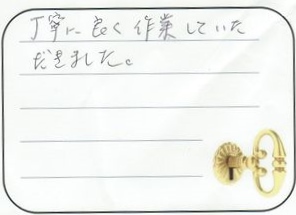 丁寧に良く作業していた
だきました。